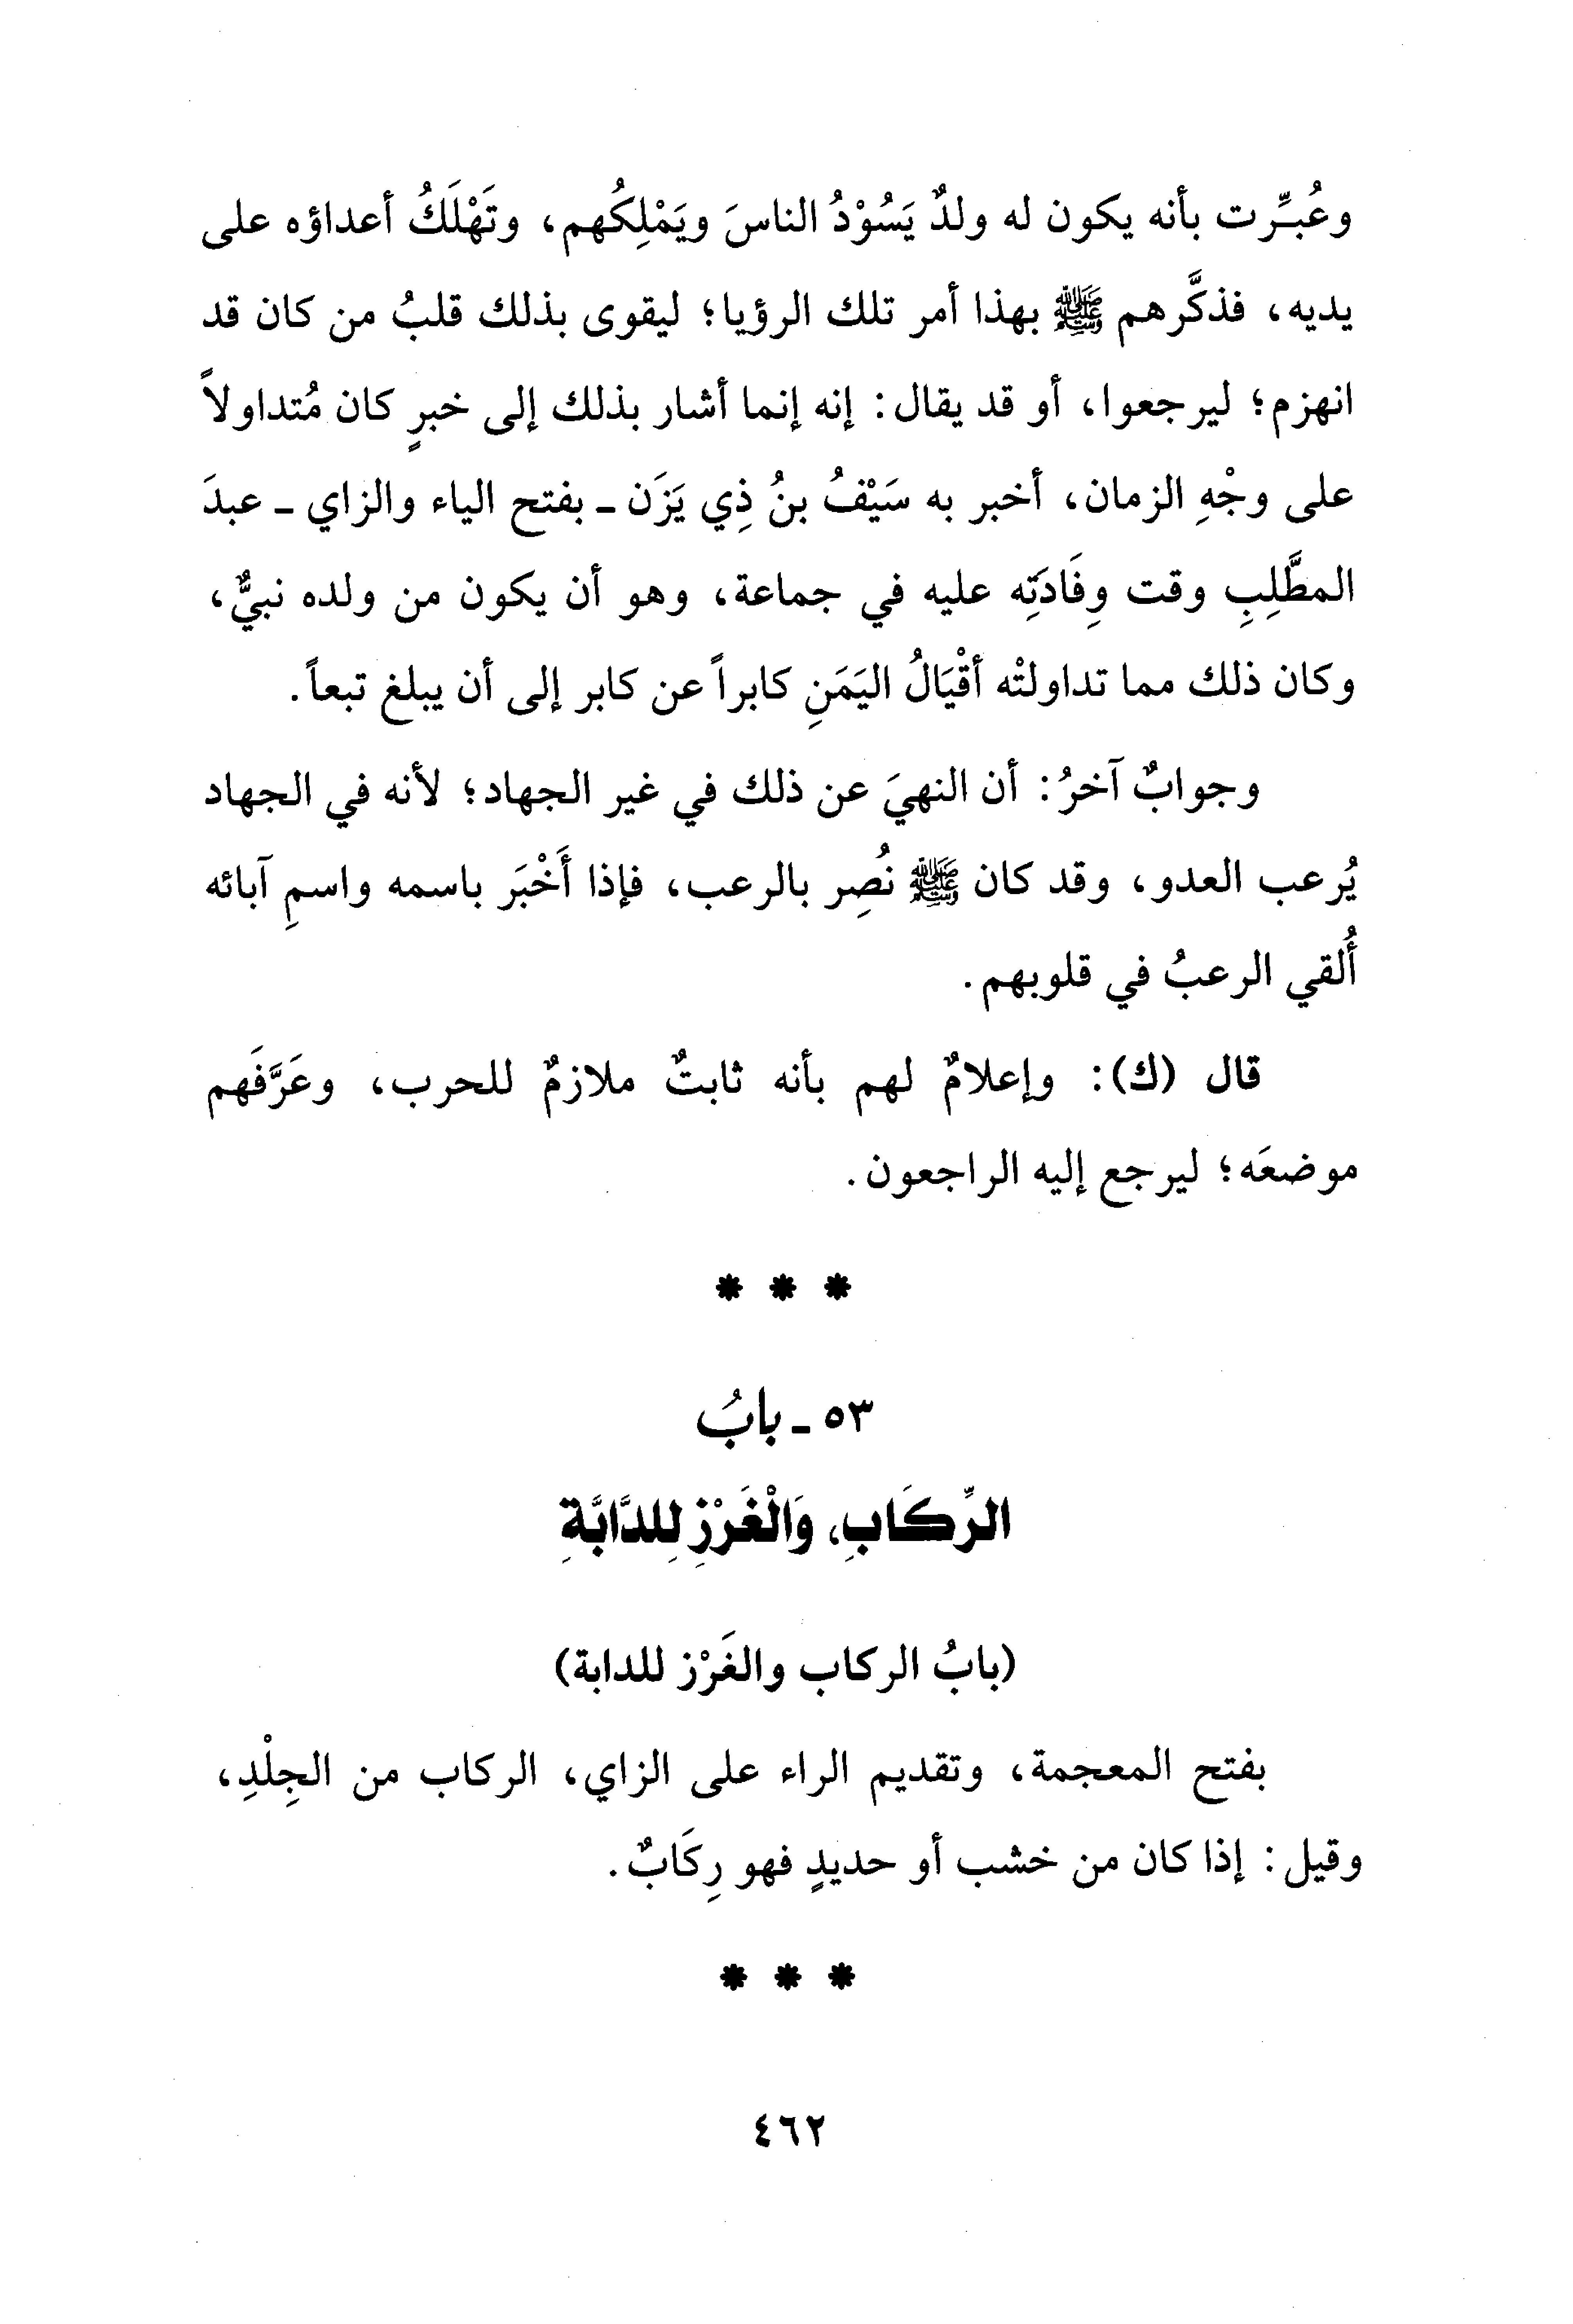 وعُبِّرت بأنه يكون له ولدٌ يَسُوْدُ الناسَ ويَمْلِكُهم، وتَهْلَكُ أعداؤه على
يديه، فذكَّرهم ﷺ بهذا أمر تلك الرؤيا؛ ليقوى بذلك قلبُ من كان قد
انهزم؛ ليرجعوا، أو قد يقال: إنه إنما أشار بذلك إلى خبرٍ كان مُتداولاً
على وجْهِ الزمان، أخبر به سَيْفُ بنُ ذِي يَزَن ـ بفتح الياء والزاي ـ عبدَ
المطَّلِبِ وقت وِفَادَتِه عليه في جماعة، وهو أن يكون من ولده نبيٌّ،
وكان ذلك مما تداولتْه أقْيَالُ اليَمَنِ كابراً عن كابر إلى أن يبلغ تبعاً.
وجوابٌ آخرُ: أن النهيَ عن ذلك في غير الجهاد؛ لأنه في الجهاد
يُرعب العدو، وقد كان ﷺ نُصِر بالرعب، فإذا أَخْبَر باسمه واسمِ آبائه
أُلقي الرعبُ في قلوبهم.
قال (ك): وإعلامٌ لهم بأنه ثابتٌ ملازمٌ للحرب، وعَرَّفَهم
موضعَه؛ ليرجع إليه الراجعون.
* * *
٥٣ ـ بابُ
الرِّكَابِ، وَالْغَرْزِ لِلدَّابَّةِ
(بابُ الركاب والغَرْز للدابة)
بفتح المعجمة، وتقديم الراء على الزاي، الركاب من الجِلْدِ،
وقيل: إذا كان من خشب أو حديدٍ فهو رِكَابٌ.
* * *
٤٦٢